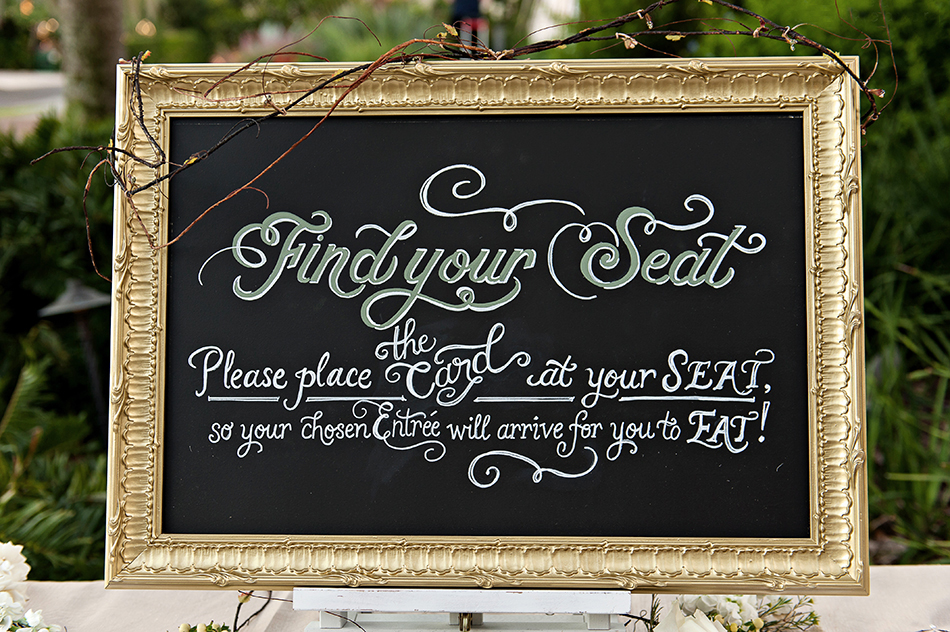 Find your Seat
Please place the Card at your SEAT,
so your chosen Entrée will arrive for you to EAT!